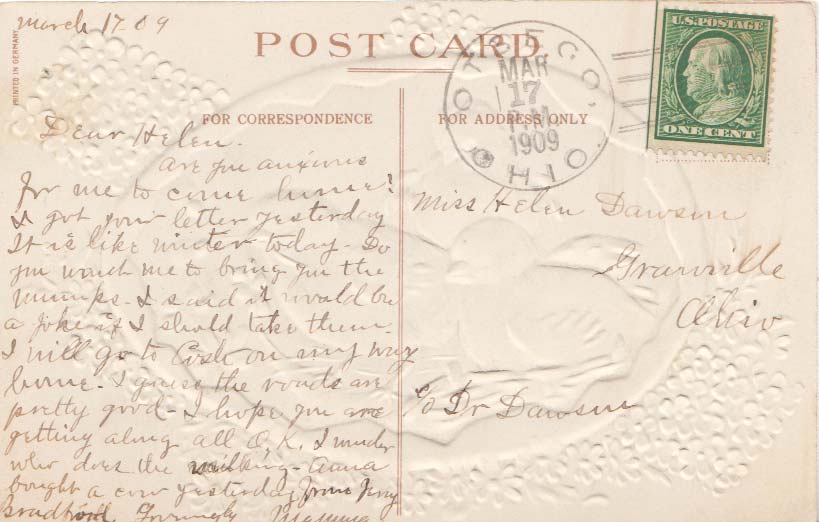 March 17 09
PRINTED IN GERMANY
POST CARD.
OTSEGO,
MAR
17
PM
1909
OHIO.
U.S. POSTAGE
ONE CENT
FOR CORRESPONDENCE
Dear Helen.
Are you anxious
for me to come home?
I got your letter yesterday
It is like winter today - Do
you want me to bring you the
mumps - I said it would be
a joke if I should take them.
I will go to Cosh on my way
home - I guess the roads are
pretty good - I hope you are
getting along all O.K. I wonder
who does the milking - Anna
bought a cow yesterday from
Bradford Lovingly Mamma
FOR ADDRESS ONLY
Miss Helen Dawson
Granville
Ohio
c/o Dr Dawson